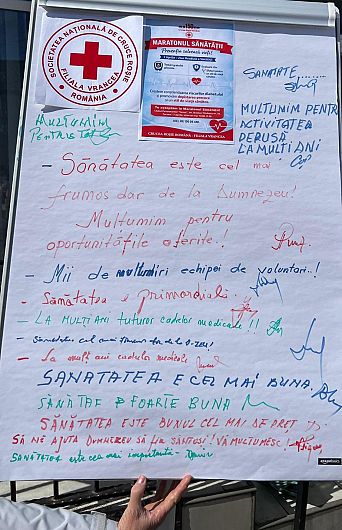 SOCIETATEA NAȚIONALĂ DE CRUCE ROȘIE
FILIALA VRANCEA
ROMÂNIA
MARATONUL SĂNĂTĂȚII
CRUCEA ROȘIE ROMÂNĂ - FILIALA VRANCEA
SANATATE.......
MULTUMIM
PENTRU TOT
MULTUMIM PENTRU
ACTIVITATEA
DEPUSĂ
LA MULȚI ANI
- Sănătatea este cel mai
frumos dar de la Dumnezeu!
Multumim pentru
oportunitățile oferite!
- Mii de multumiri echipei de voluntari..!
- Sănătatea e primordială.
- LA MULȚI ANI tuturor cadrelor medicale!!
- La mulți ani cadrelor medicale
SANATATEA E CEL MAI BUNA.
SĂNĂTATE FOARTE BUNA
SĂNĂTATEA ESTE BUNUL CEL MAI DE PREȚ
SĂ NE AJUTA DUMNEZEU SĂ FIM SĂNĂTOȘI! VĂ MULTUMESC!
SANATATEA este cea mai importantă -